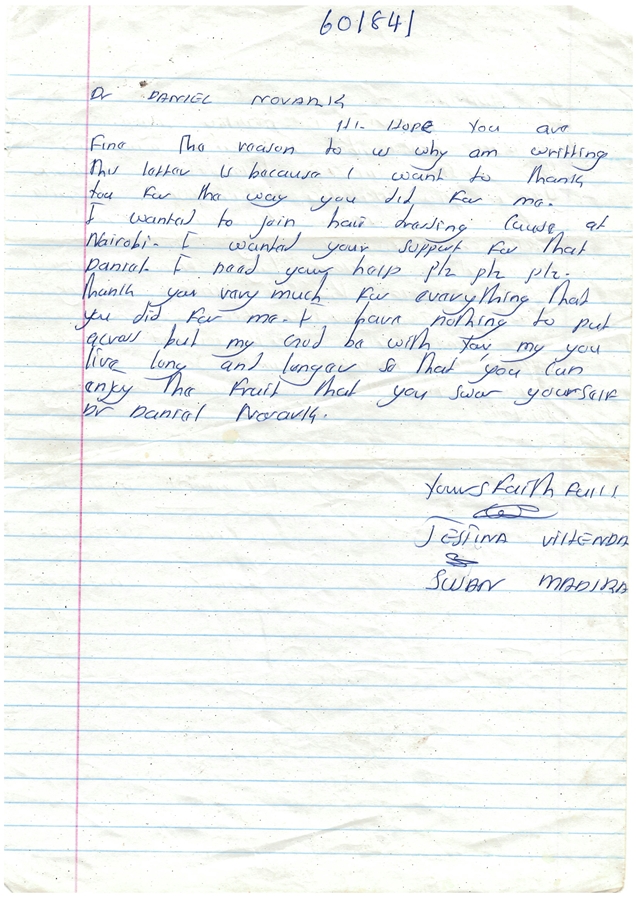 601841
Dr DANIEL NOVARIK
Hi. HOPE You are
Fine The reason to us why am writting
This letter is because I want to thank
You For the way you did For me.
I wanted to join hair dressing Cause at
Nairobi. I wanted your support For That
Danial. I need your help plz plz plz.
Thank you very much For everything That
you did For me. I have nothing to put
across but my God be with You, my you
live long and longer so that you can
enjoy The Fruit That you swor yourself
Dr Danial Novarik.
Yours Faith Full!
JESTINA VIHENDA
SWAN MADIRA